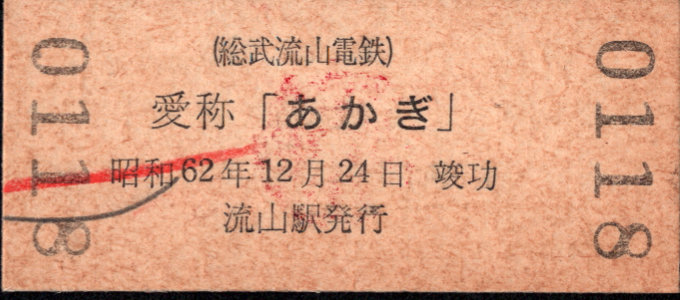 (総武流山電鉄)
愛称「あかぎ」
昭和62年12月24日 竣功
流山駅発行
01118
01118